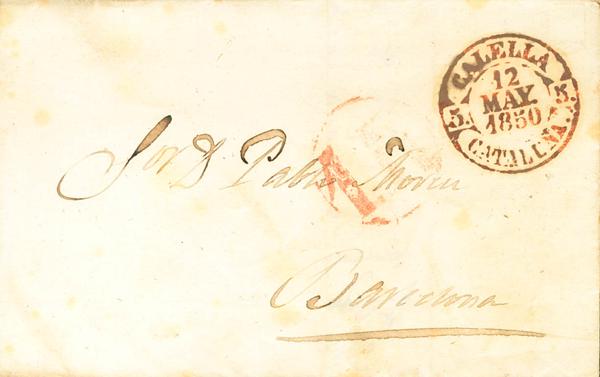 CALELLA
12
MAY.
1850
5 5
CATALUÑA.
Sor D Pablo
Barcelona